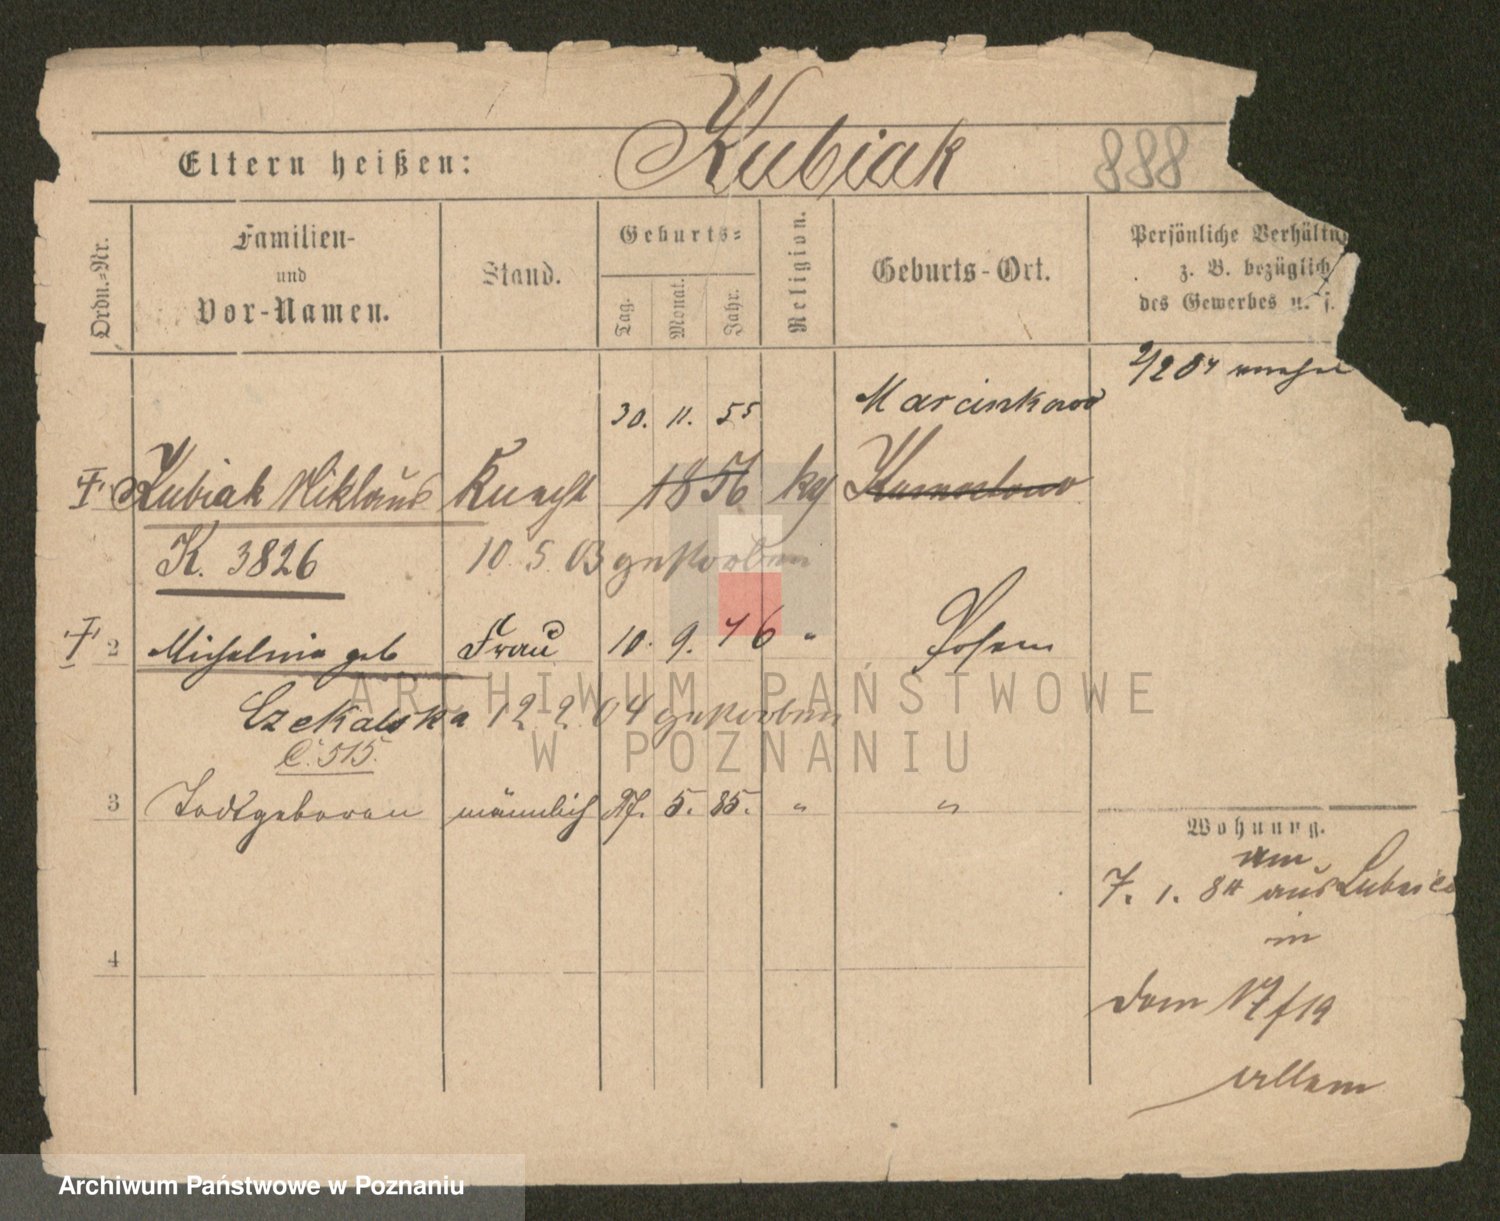 Eltern heißen: Kubiak 888
Ordn.-Nr.
Familien-
und
Vor-Namen.
Stand.
Geburts-
Tag.
Monat.
Jahr.
Religion.
Geburts-Ort.
Persönliche Verhältn
z. B. bezüglich
des Gewerbes u. s.
30. 11. 55 Marcinkowo
Kubiak Niklaus Knecht 1856 kg
K. 3826 10. 5. 03 gestorben
2 Michalina geb Frau 10. 9. 46 " Posen
Czekalska 12 2. 04 gestorben
C. 515.
3 Todtgeboren männlich 5. 85. " "
Wohnung.
am
7. 1. 84 aus
in
4
Dom 17/19
allein
ARCHIWUM PAŃSTWOWE
W POZNANIU
Archiwum Państwowe w Poznaniu